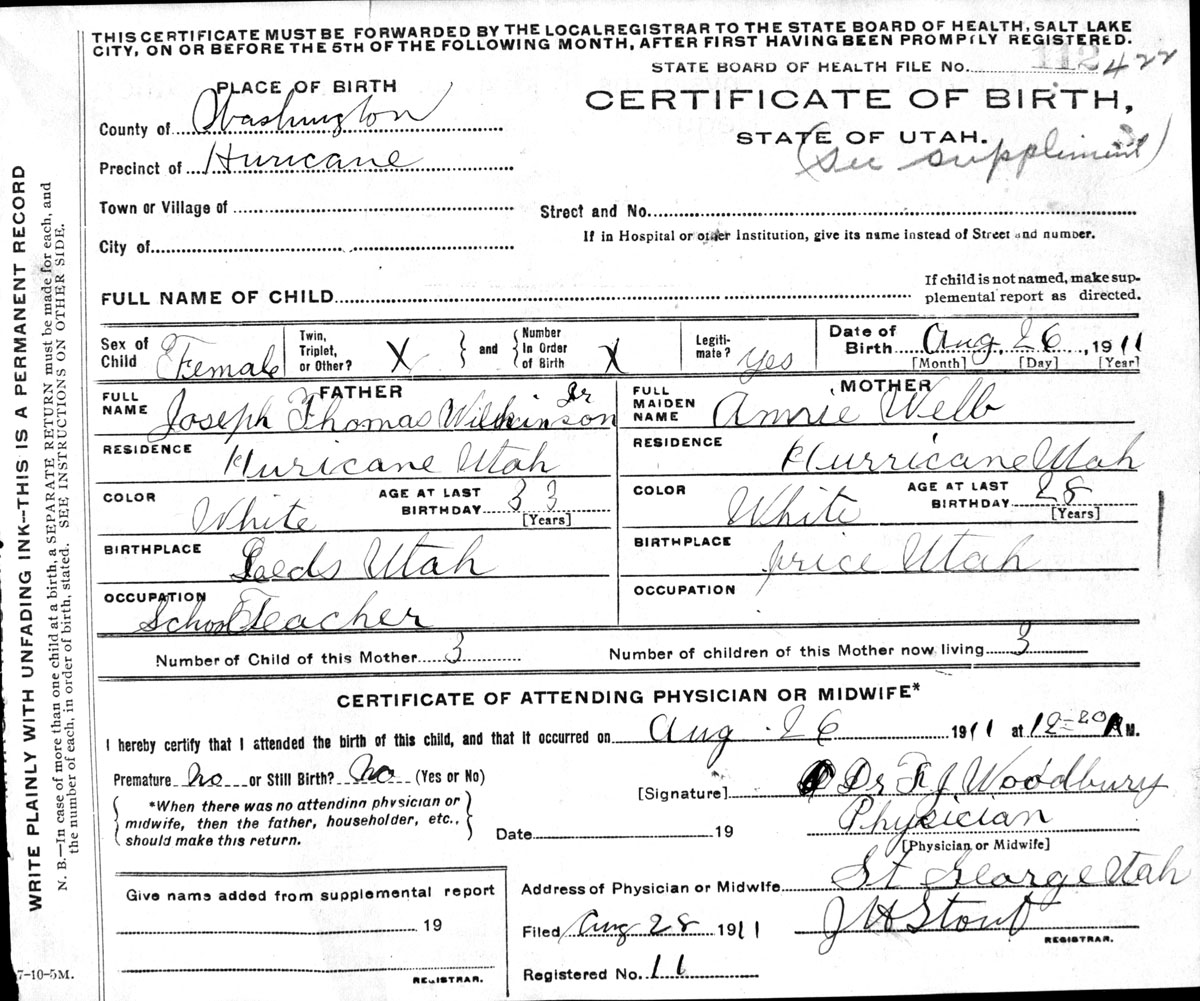 THIS CERTIFICATE MUST BE FORWARDED BY THE LOCAL REGISTRAR TO THE STATE BOARD OF HEALTH, SALT LAKE
CITY, ON OR BEFORE THE 5TH OF THE FOLLOWING MONTH, AFTER FIRST HAVING BEEN PROMPTLY REGISTERED.
STATE BOARD OF HEALTH FILE NO. 112 422
PLACE OF BIRTH
CERTIFICATE OF BIRTH,
County of Washington
STATE OF UTAH.
(See suppliment)
Precinct of Huricane
Town or Village of
Street and No.
City of
If in Hospital or other Institution, give its name instead of Street and number.
FULL NAME OF CHILD
If child is not named, make sup-
plemental report as directed.
Sex of Child Female
Twin, Triplet, or Other? X and Number In Order of Birth X
Legiti-mate? yes
Date of Birth Aug. 26, 1911
[Month] [Day] [Year]
FATHER
MOTHER
FULL NAME Joseph Thomas Wilkinson Jr
FULL MAIDEN NAME Annie Webb
RESIDENCE Huricane Utah
RESIDENCE Hurricane Utah
COLOR White AGE AT LAST BIRTHDAY 33 [Years]
COLOR White AGE AT LAST BIRTHDAY 28 [Years]
BIRTHPLACE Leeds Utah
BIRTHPLACE price Utah
OCCUPATION School Teacher
OCCUPATION
Number of Child of this Mother 3
Number of children of this Mother now living 3
CERTIFICATE OF ATTENDING PHYSICIAN OR MIDWIFE*
I hereby certify that I attended the birth of this child, and that it occurred on Aug. 26 1911 at 12-20 A M.
Premature no or Still Birth? No (Yes or No)
*When there was no attending physician or
midwife, then the father, householder, etc.,
should make this return.
[Signature] Dr F. J. Woodbury
Date 19
Physician
[Physician or Midwife]
Give name added from supplemental report
19
REGISTRAR.
Address of Physician or Midwife St George Utah
Filed Aug 28 1911 J H Stout
REGISTRAR.
Registered No. 11
7-10-5M.
WRITE PLAINLY WITH UNFADING INK—THIS IS A PERMANENT RECORD
N. B.—In case of more than one child at a birth, a SEPARATE RETURN must be made for each, and
the number of each, in order of birth, stated. SEE INSTRUCTIONS ON OTHER SIDE.